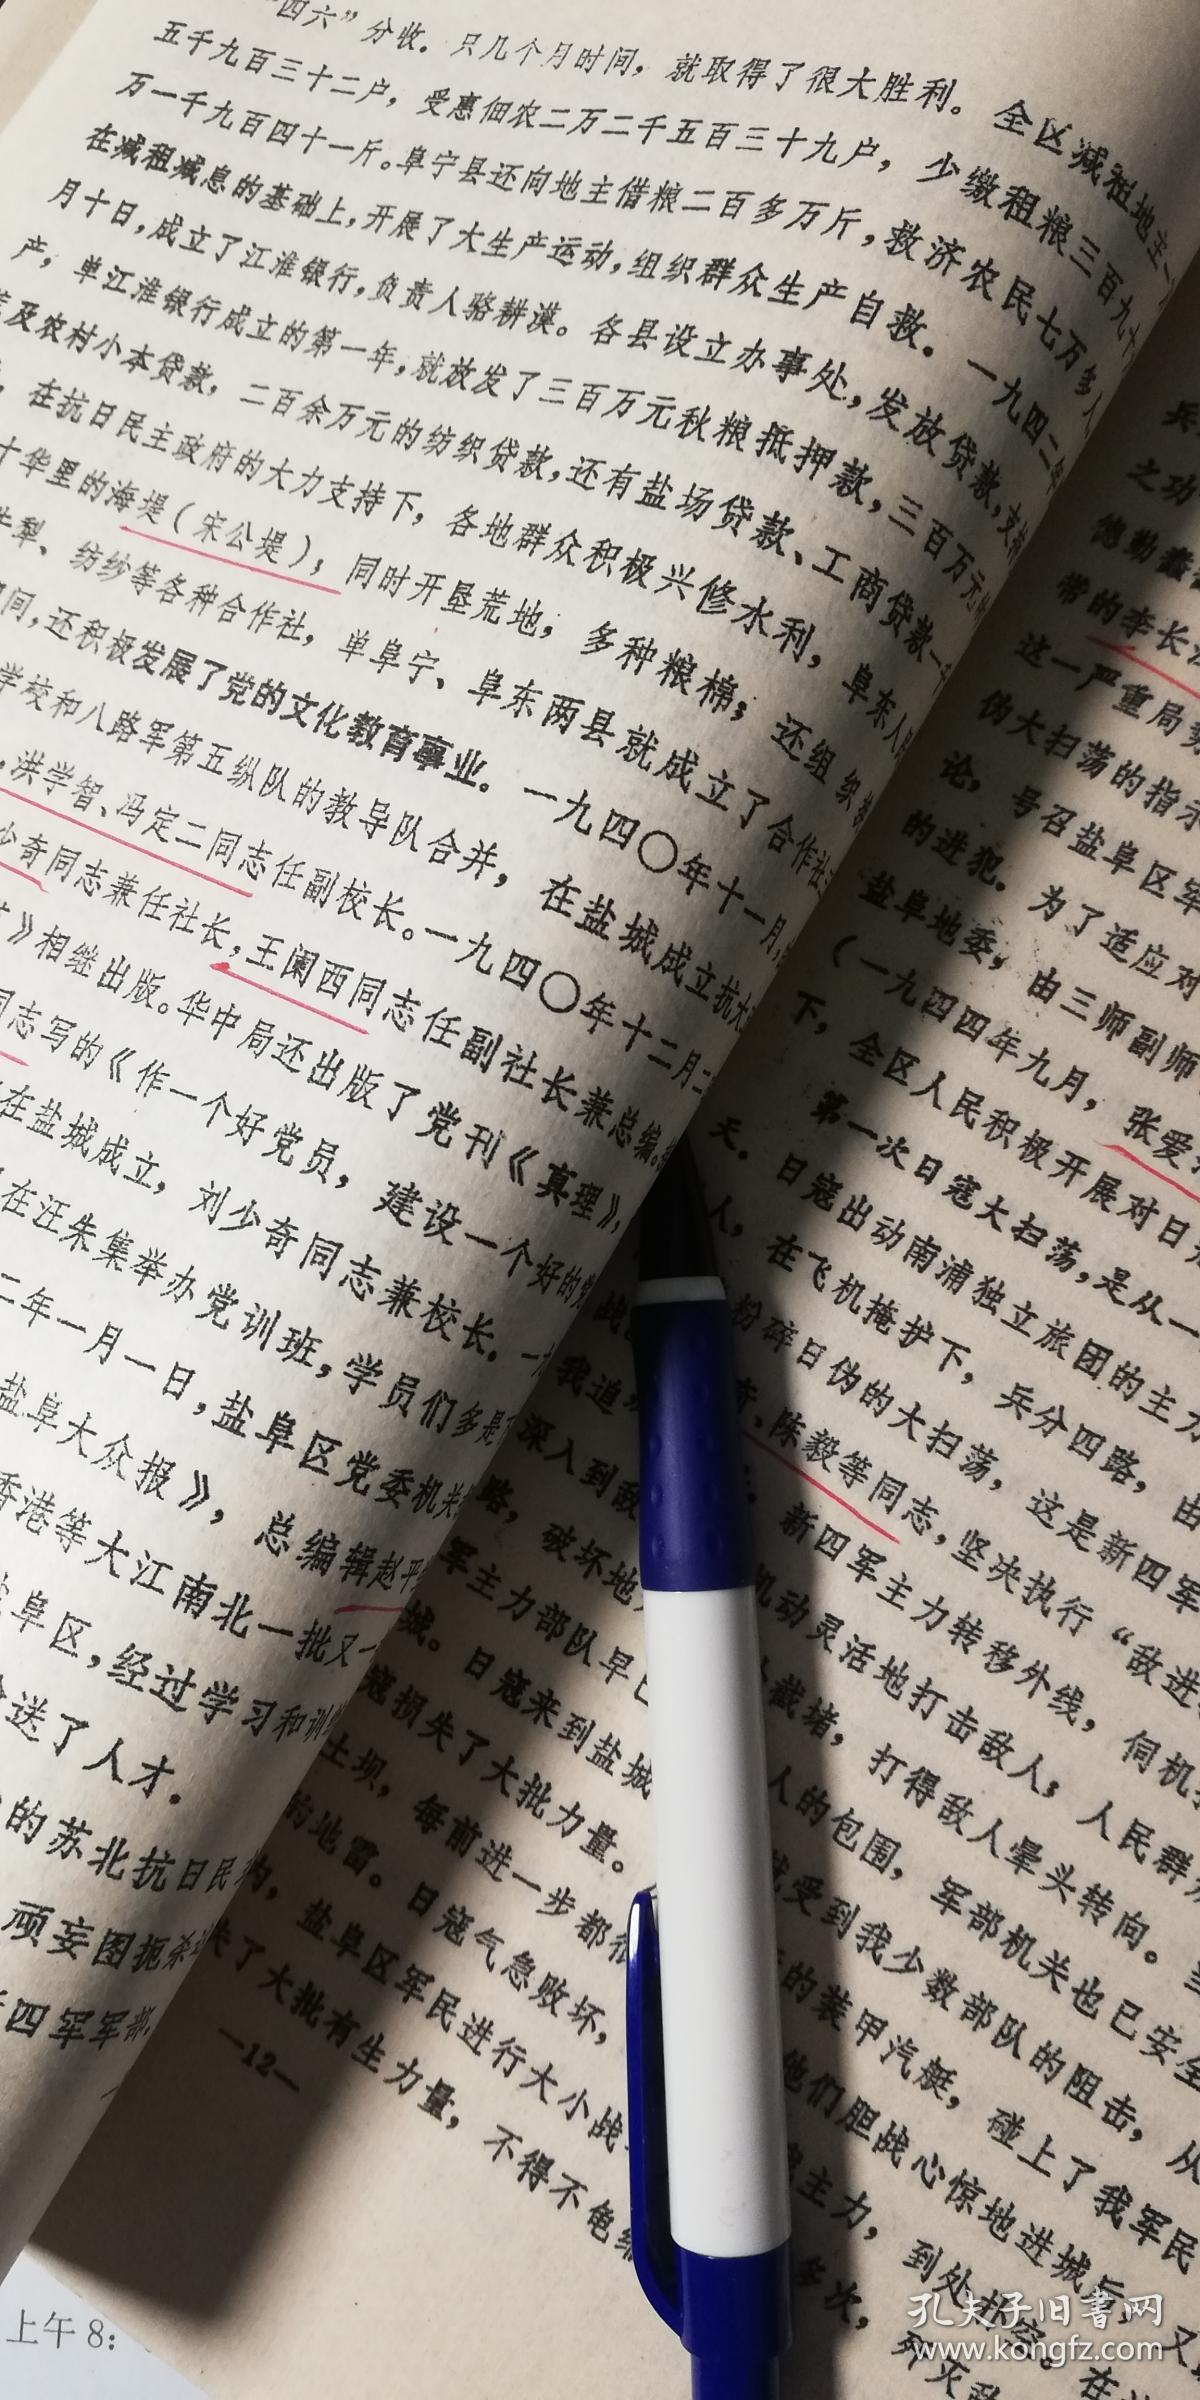 “四六”分收．只几个月时间，就取得了很大胜利。全区减租地主一
五千九百三十二户，受惠佃农二万二千五百三十九户，少缴租粮三百九十
万一千九百四十一斤。阜宁县还向地主借粮二百多万斤，救济农民七万多人
在减租减息的基础上，开展了大生产运动，组织群众生产自救．一九四二年
月十日，成立了江淮银行，负责人骆耕漠。各县设立办事处，发放贷款，支持
产，单江淮银行成立的第一年，就放发了三百万元秋粮抵押款，三百万元
及农村小本贷款，二百余万元的纺织贷款，还有盐场贷款、工商贷款
，在抗日民主政府的大力支持下，各地群众积极兴修水利，阜东人民
十华里的海堤（宋公堤），同时开垦荒地，多种粮棉；还组织
犁、纺纱等各种合作社，单阜宁、阜东两县就成立了合作社
间，还积极发展了党的文化教育事业．一九四〇年十一月，
学校和八路军第五纵队的教导队合并，在盐城成立抗大
，洪学智、冯定二同志任副校长。一九四〇年十二月二
少奇同志兼任社长，王阑西同志任副社长兼总编．
》相继出版。华中局还出版了党刊《真理》，
同志写的《作一个好党员，建设一个好的党
在盐城成立，刘少奇同志兼校长．一
在汪朱集举办党训班，学员们多是
二年一月一日，盐阜区党委机关
盐阜大众报》，总编辑赵平
香港等大江南北一批又一
阜区，经过学习和训
送了人才．
的苏北抗日民
顽妄图扼杀
四军军部
兵
之功
德勤蠢
常的李长
这一严重局势
伪大扫荡的指示
论，号召盐阜区军
的进犯．为了适应对
盐阜地委，由三师副师
（一九四四年九月，张爱
下，全区人民积极开展对日
第一次日寇大扫荡，是从一
天．日寇出动南浦独立旅团的主力
人，在飞机掩护下，兵分四路，由
粉碎日伪的大扫荡，这是新四军
、陈毅等同志，坚决执行“敌进
我追
深入到敌
新四军主力转移外线，伺机
路，破坏地
机动灵活地打击敌人，人民群
军主力部队早已
截堵，打得敌人晕头转向．
城。日寇来到盐城
人的包围，军部机关也已安全
寇损失了大批力量。
受到我少数部队的阻击，从
土坝，每前进一步都很
的装甲汽艇，碰上了我军民
的地雷。日寇气急败坏，
他们胆战心惊地进城后，又
，盐阜区军民进行大小战
主力，到处扑空。在
失了大批有生力量，不得不龟缩
多次，歼灭敌
—12—
上午8:
孔夫子旧书网
www.kongfz.com